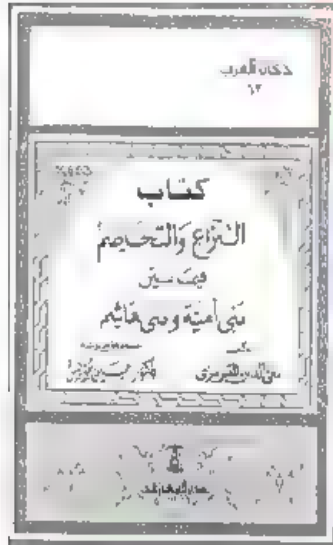 ذخائر العرب
٦٢
كتاب
النزاع والتخاصم
فيما بين
بني أمية وبني هاشم
تقي الدين المقريزي
دكتور حسين مؤنس
دار المعارف